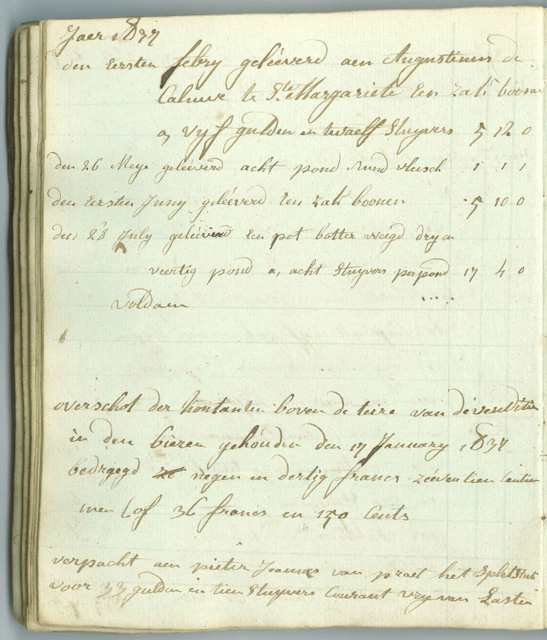 Jaer 1837
den Eersten febry geleeverd aen Augustinus de
Caluwe te Ste Margariete Een zak boonen
a vyf gulden en twaelf Stuyvers 5 12 0
den 26 Mey geleeverd acht pond Rund vleesch 1 1 1
den Eersten Juny geleeverd Een zak boonen 5 10 0
den 28 July geleeverd Een pot botter weegd dry en
viertig pond a, acht Stuyvers per pond 17 4 0
Voldaen
overschot der kontanten boven de teire van de venditie
in den bieren gehouden den 17 January 1837
bedregd negen en dertig francs zeeventien Centie
men of 36 francs en 150 Cents
verpacht aen pieter Joannes van praet het
voor 33 gulden en tien Stuyvers Courant vry van Lasten